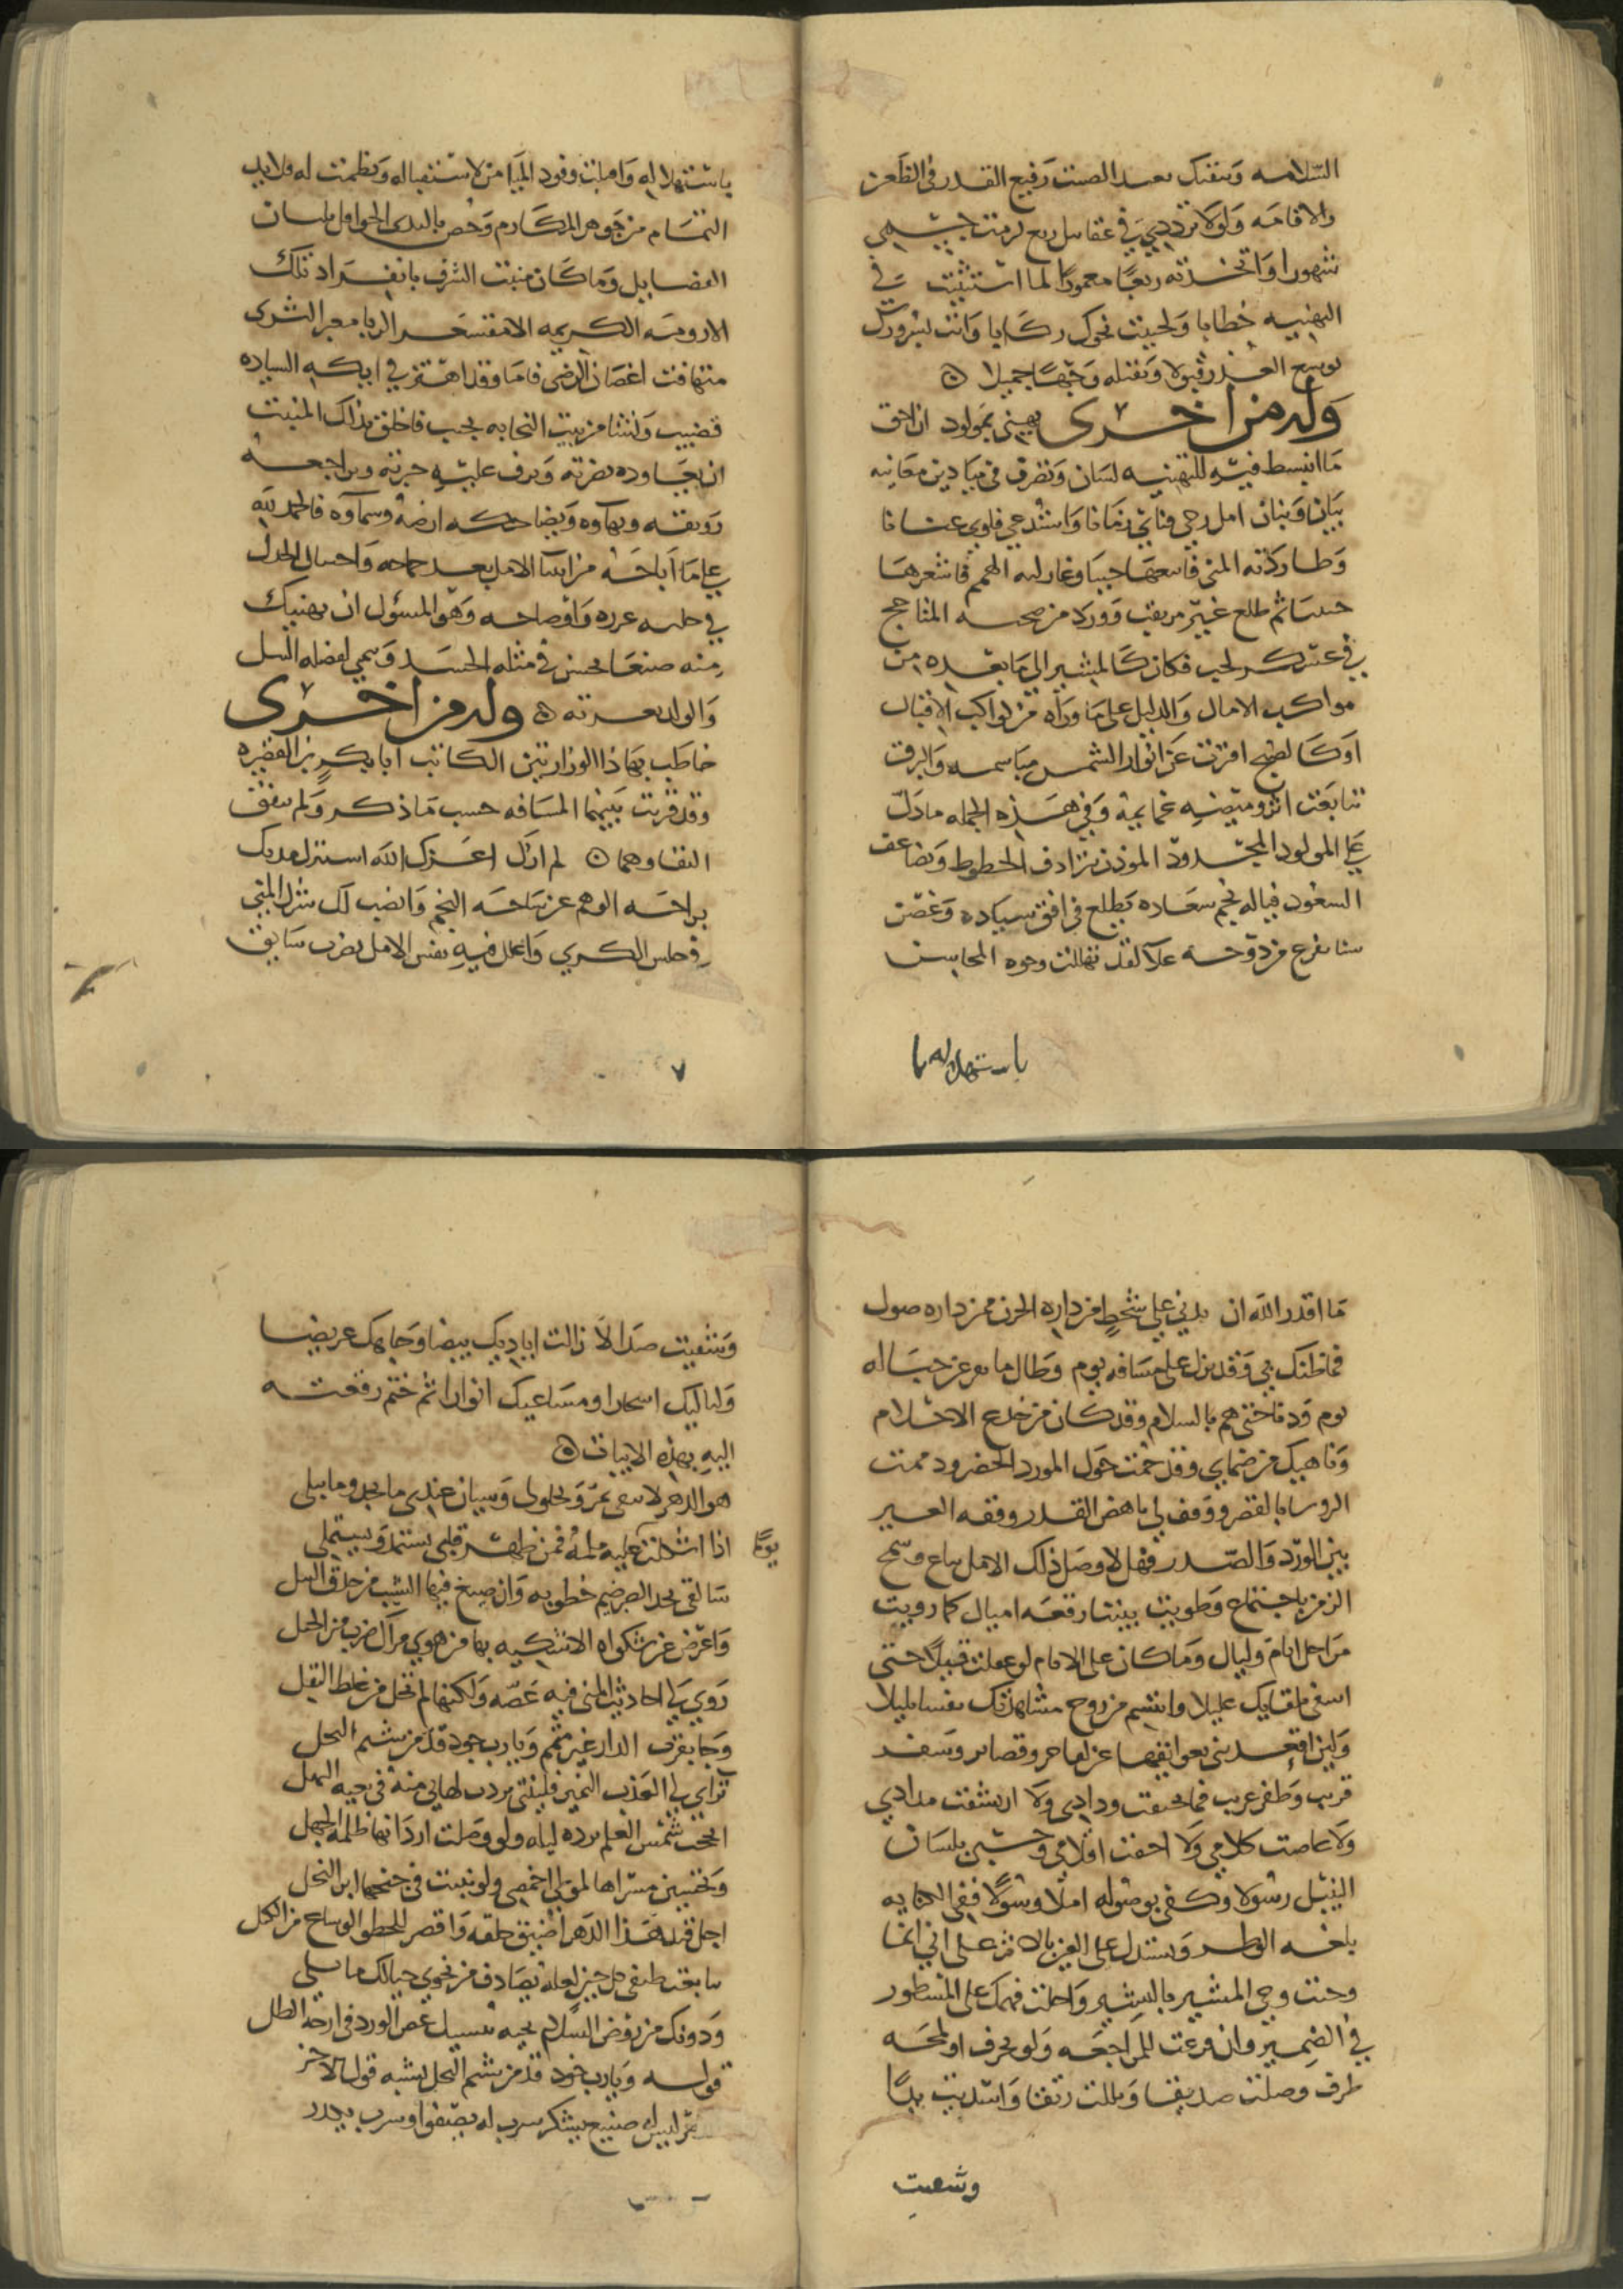 السلامه وتبقيك بعيد الصيت رفيع القدر في الظعن
والاقامه ولولا ترددي في عقابيل ربع لزمت جسمي
شهورا واتخذته ربعا معمورا لما استنبت في
التهنيه خطابا ولحببت نحوك ركابا وانت بسرورك
توسع العذر قبولا وتقبله وجها جميلا
وله من اخرى يهني بمولود ان احق
ما انبسط فيه للتهنيه لسان وتصرف في ميادين معانيه
بيان وبنان امل رجي فتاتي زمانا واستدعي فلوى عنانا
وطاردته المنى فاتعبها حينا وغازلته الهمم فاشعرها
ثم طلع غير مرتقب وورد من صحبه المناجح
في عسكر لجب فكان كالمشير الى ما بعده من
مواكب الامال والدليل على ما وراه من كواكب الاقبال
او كالصبح افترت عن انوار الشمس مباسمه والبرق
تتابعت اثر وميضه غمايمه وفي هذه الجمله ما دل
على المولود المجدود الموذن بترادف الحظوظ وتضاعف
السعود فياله نجم سعاده يطلع في افق سياده وغصن
سنا تفرع من دوحة علا لقد تهللت وجوه المحاسن
باستهلاله وا
باستهلاله واقبلت وفود الميامن لاستقباله ونظمت له قلايد
التمايم من جوهر المكارم وخص بالثدى الحوافل بلبان
الفضايل وما كان منبت الشرف بانفراد تلك
الارومه الكريمه الا مقشعر الربا مغبر الثرى
متهافت اغصان الرضى فاما وقد اهتز في ايكه السياده
قضيب ونشا من بيت النجابه نجيب فاخلق بذلك المنبت
ان تعاوده نضرته وترف عليه حبرته ويراجعه
رونقه وبهاوه وتضاحكه ارضه وسماوه فالحمد لله
على ما اباحه من ايناس الامل بعد جماحه واختيال الجذل
في حليه غرره واوضاحه وهو المسؤل ان يهنيك
منه صنعا يحسن في مثله الحسد وينمي لفضله النسل
والولد بعزته وله من اخرى
خاطب بها ذا الوزارتين الكاتب ابا بكر بن القصيره
وقد قربت بينهما المسافه حسب ما ذكر ولم يتفق
التقاوهما لم ازل اعزك الله استنزل قربك
براحة الوهم عن ساحة النجم وانصب لك شرك المنى
في خلس الكرى واعلل فيه نفس الامل بضرب سابق
ما اقدر الله ان يدني على شحط من داره الحزن ممن داره صول
فما ظنك بي وقد نزل على مسافه يوم وطال ما نفر عن حباله
نوم ودنا حتى هم بالسلام وقد كان من خدع الاحلام
وناهيك من ظماي وقد حمت حول المورد الخضر وذممت
الرشا بالقصر ووقف بي ناهض القدر وقفه العير
بين الورد والصدر فهلا وصل ذلك الامل بباع وسمح
الزمن باجتماع وطويت بيننا رقعه اميال كما رويت
مراحل ايام وليال وما كان على الايام لو غفلت قليلا حتى
اشفي بلقايك غليلا واتنسم من روح مشاهدتك نفسا بليلا
ولين اقعدتني بعوايقها عن لقا حر وقضا بر وسفر
قريب وظفر غريب فما تحيفت ودادي ولا ارتشفت مدادي
ولا غاضت كلامي ولا احفت اقلامي وحسبي بلسان
النبل رسولا وكفى بوصوله املا وسولا ففي الكتابه
بلغه الوطر ويستدل على العين بالاثر على اني انما
وحيت وحي المشير باليسير واحلت فهمك على المسطور
في الضمير وان فرعت للمراجعه ولو بحرف او لمحه
طرف وصلت صديقا وبللت ريقا واسديت يدا
وشفيت
وشفيت صدا لا زالت اياديك بيضا وجاهك عريضا
ولياليك اسحارا ومساعيك انوارا ثم ختم رقعته
اليه بهذه الابيات
هو الدهر لا يبقى يمر ويحلولى وسيان عندي ما يجد وما يبلى
يوما اذا اشكلت عليه ملمة فمن ظهر قلبي يستمد ويستملي
سالقى بحد الصبر صم خطوبه وان صيغ فيها الشيب من حدق النبل
واعرض عن شكواه الا شكيه بها من هوى مر الى ضرب من الخبل
روى لي احاديث المنى فيه غضه ولكنها لم تخل من غلط النقل
وجا بقرب الدار غير متمم ويا رب جود قد من شيم البخل
ترأى لي العذب النمير فليتني بردت لهاتي منه في نغبة النهل
انحت شمس العلم برده ليله ولو وصلت اردانها ظلم الجهل
وتخنسني مسراها لموطي اخمصي ولو نبتت في جنحها ابر النحل
اجل قد هذا الدهر اضيق حلقه واقصر للخطو الوساع من الكبل
سابعث طيفي كل حين لعله يصادف من نجوى خيالك ما يسلي
ودونك من روض السلام تحيه تنسيك غض الورد في راحة الطل
قوله ويا رب جود قد من شيم البخل يشبه قول الاخر